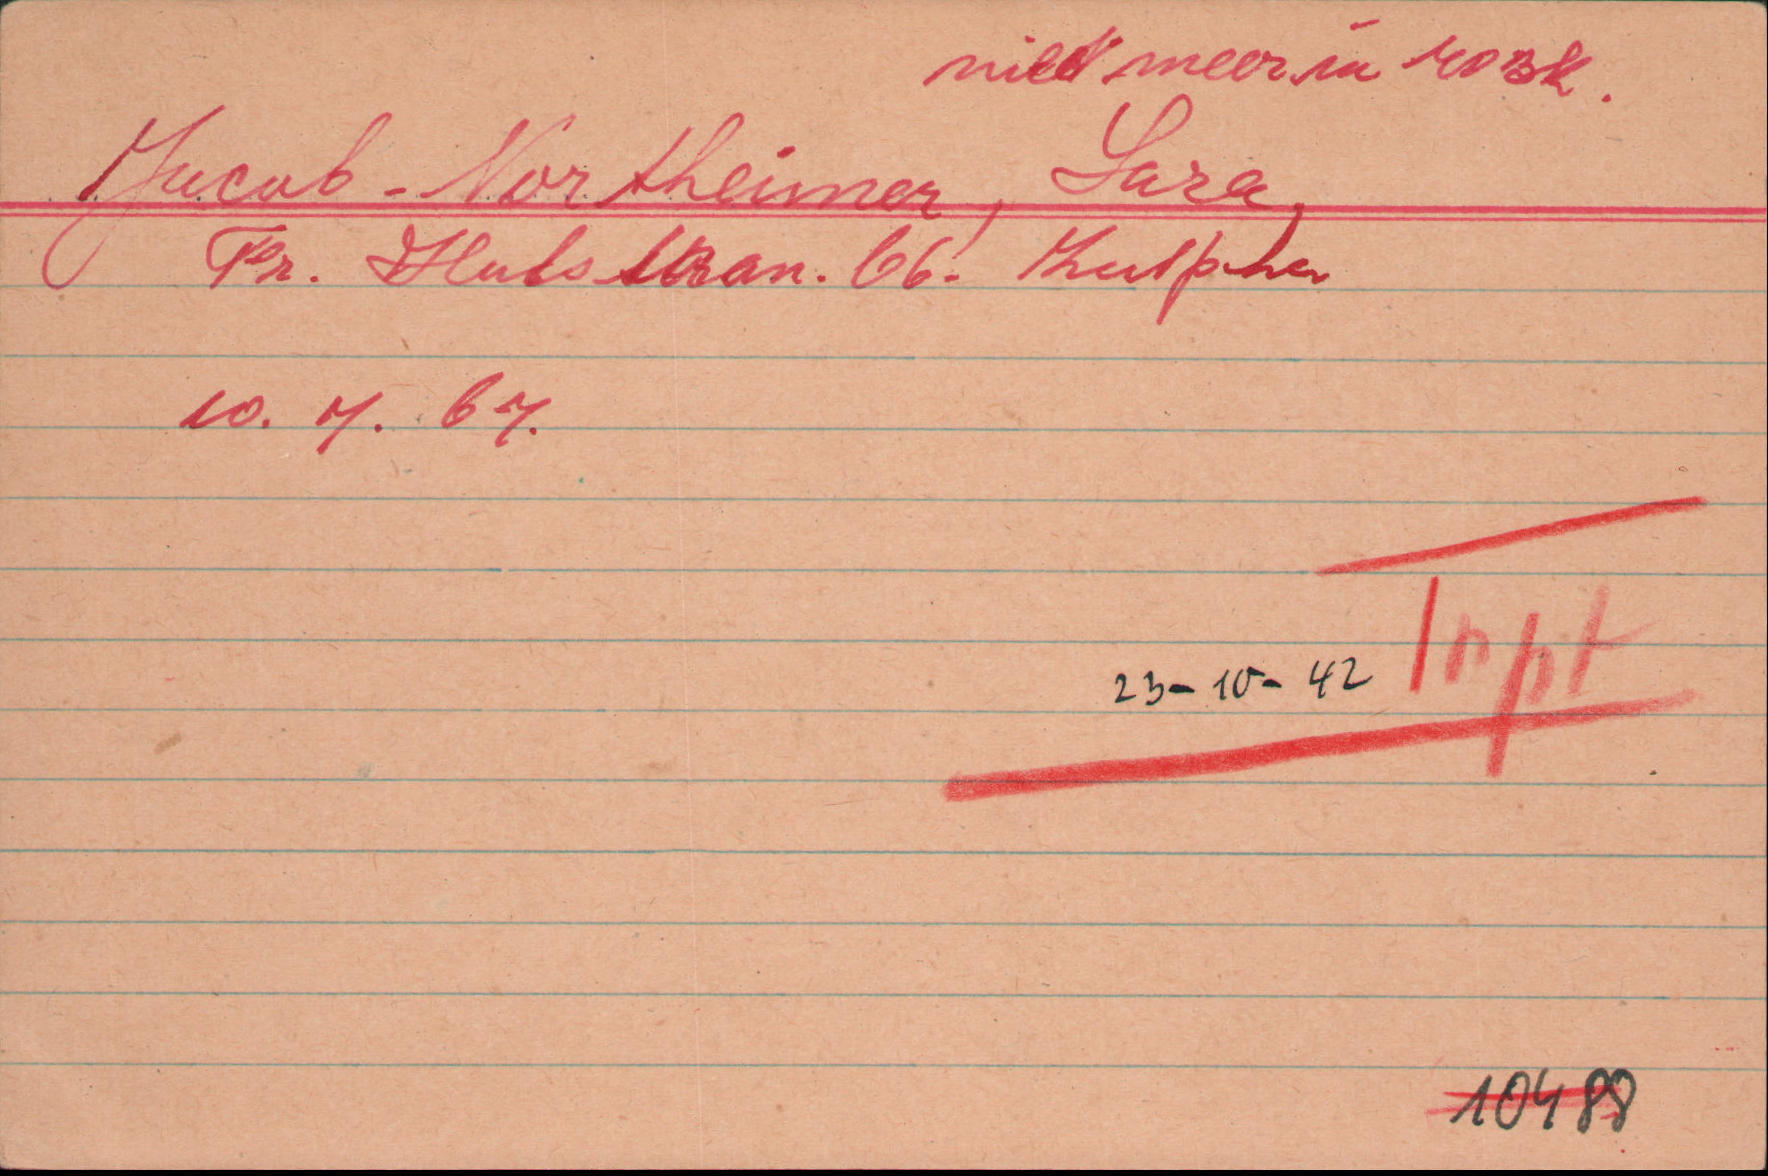 niet meer in
Jacob - Northeimer, Sara,
Fr. Halsstraat. 66. Zutphen
10. 7. 67.
23-10-42
10488